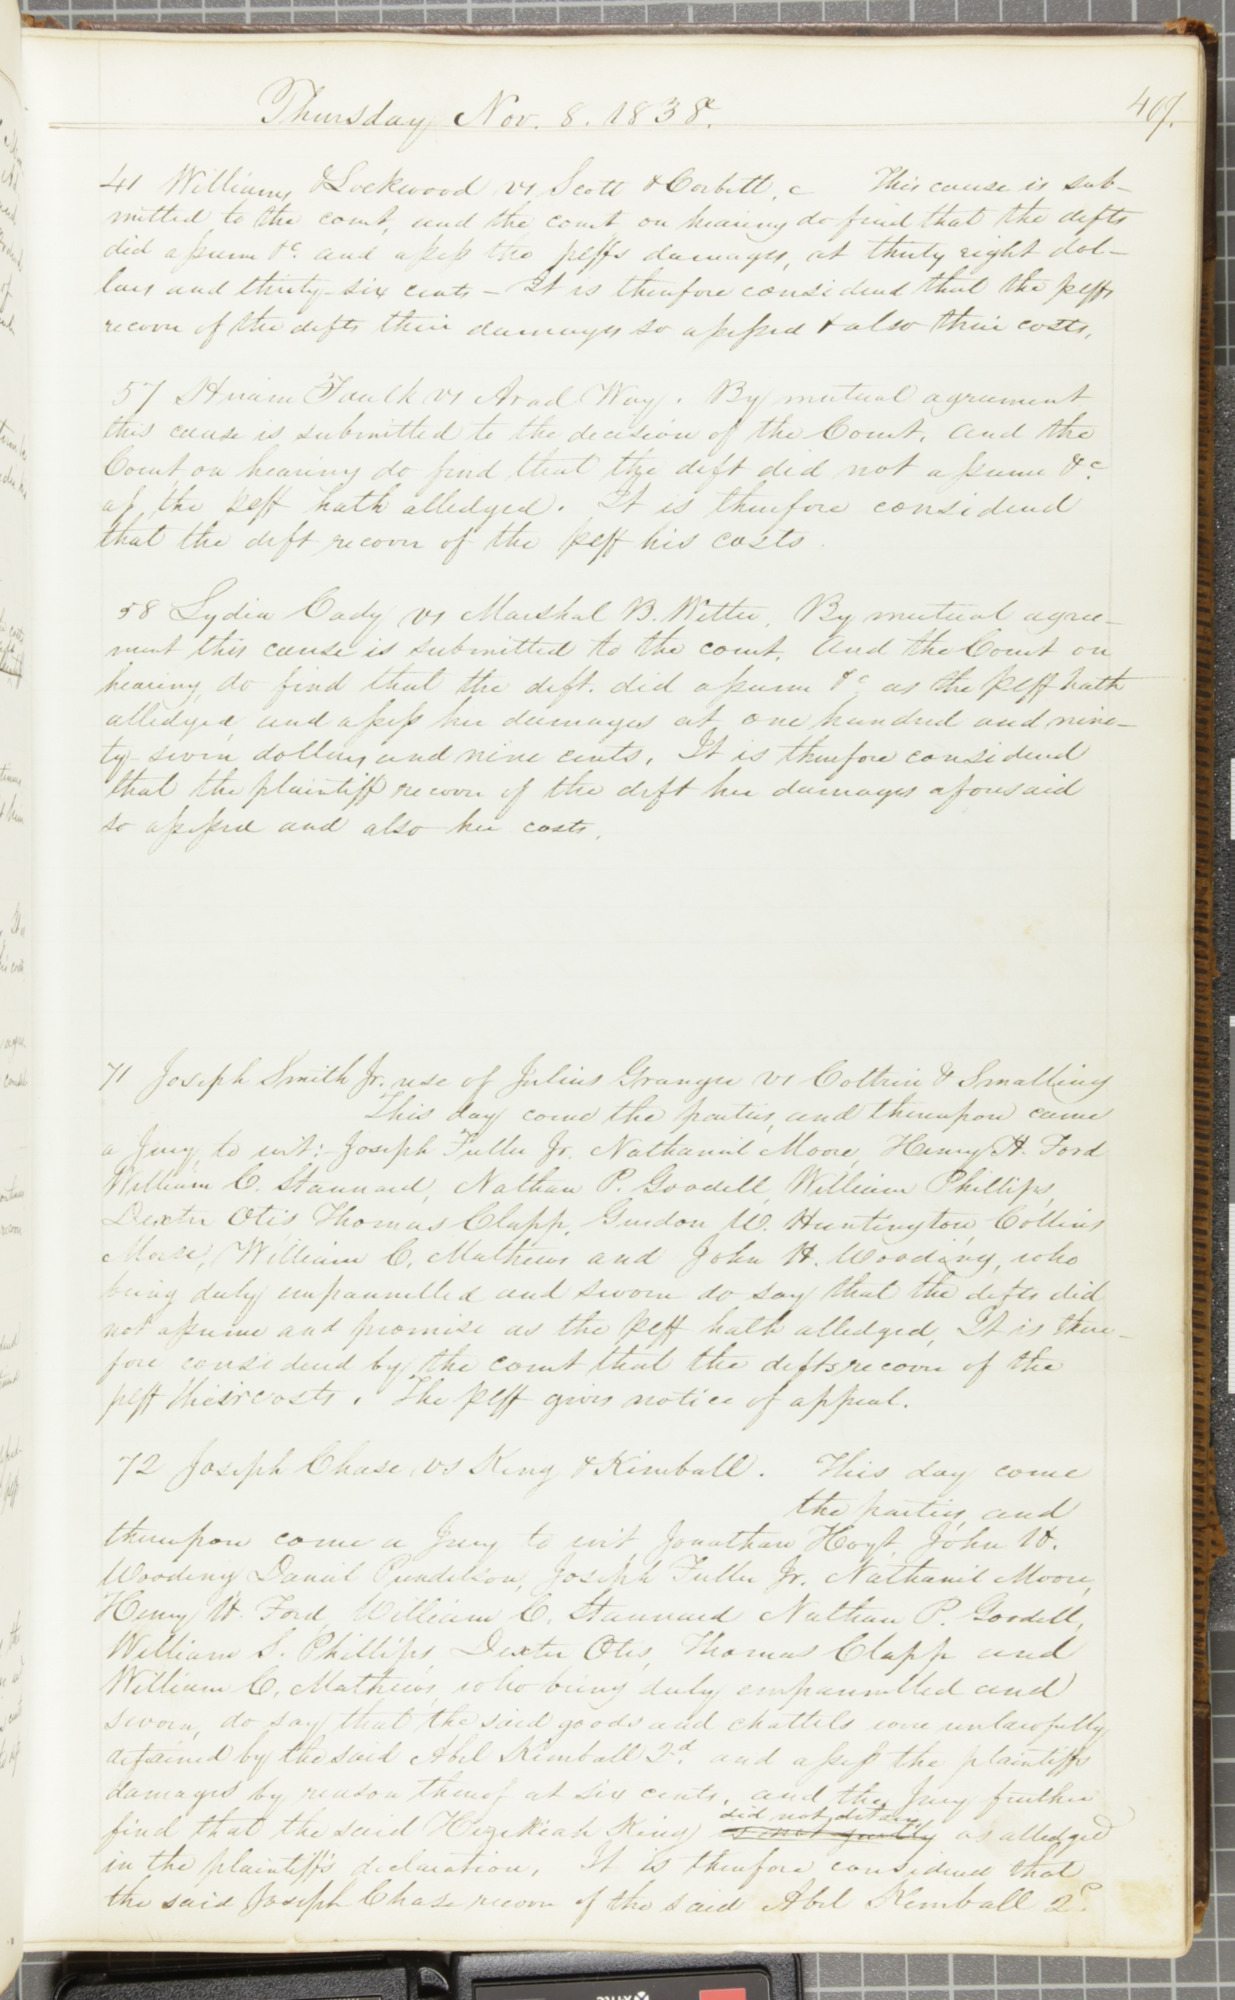 Thursday Nov. 8. 1838.
407.
41 Williams & Lockwood vs Scott & Corbett, c This cause is sub-
mitted to the court, and the court on hearing do find that the defts
did assume &c. and assess the peffs damages, at thirty eight dol-
lars and thirty-six cents - It is therefore considered that the peffs
recover of the defts their damages so assessed & also their costs.
57 Hiram Faulk vs Arad Way. By mutual agreement
this cause is submitted to the decision of the Court. and the
Court, on hearing do find that the deft did not assume &c.
as the peff hath alledged. It is therefore considered
that the deft recover of the peff his costs.
58 Lydia Cady vs Marshal B. Witter. By mutual agree-
ment this cause is submitted to the court. And the Court on
hearing, do find that the deft. did assume &c as the peff hath
alledged, and assess her damages at one hundred and nine-
ty-seven dollars and nine cents. It is therefore considered
that the plaintiff recover of the deft her damages aforesaid
so assessed and also her costs.
71 Joseph Smith Jr. use of Julius Granger vs Coltrin & Smalling
This day come the parties, and thereupon came
a Jury, to wit:- Joseph Fuller Jr. Nathaniel Moore, Henry H. Ford
William C. Stannard, Nathan P. Goodell, William Phillips,
Dexter Otis, Thomas Clapp, Gurdon W. Huntington, Collins
Morse, William C. Mathews and John H. Wooding, who
being duly empannelled and sworn do say that the defts did
not assume and promise as the peff hath alledged, It is there-
fore considered by the court that the defts recover of the
peff their costs. The peff gives notice of appeal.
72 Joseph Chase vs King & Kimball. This day come
the parties, and
thereupon came a Jury to wit, Jonathan Hoyt, John H.
Wooding Daniel Pendelion, Joseph Fuller Jr. Nathaniel Moore,
Henry H. Ford, William C. Stannard Nathan P. Goodell,
William S. Phillips Dexter Otis, Thomas Clapp and
William C. Mathews, who being duly empannelled and
sworn, do say that the said goods and chattels were unlawfully
detained by the said Abel Kimball 2d. and assess the plaintiffs
damages by reason thereof at six cents. and the Jury further
did not detain
find that the said Hezekiah King is not guilty as alledged
in the plaintiff's declaration. It is therefore considered that
the said Joseph Chase recover of the said Abel Kimball 2d.